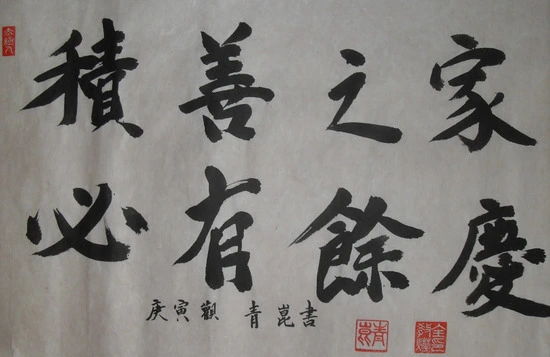 積善之家
必有餘慶
庚寅觀青崑書